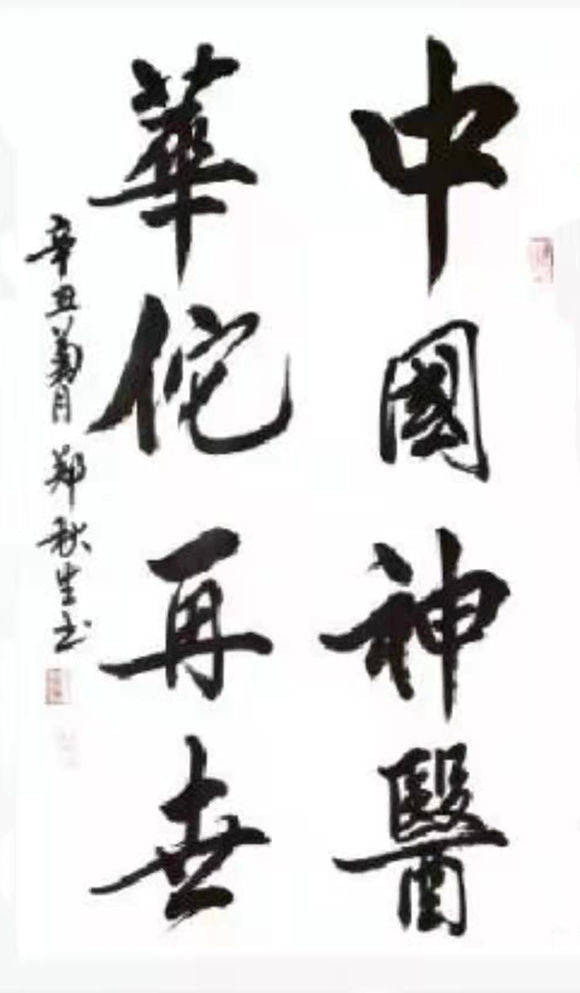 中國神醫
華佗再世
辛丑菊月 郑秋生书